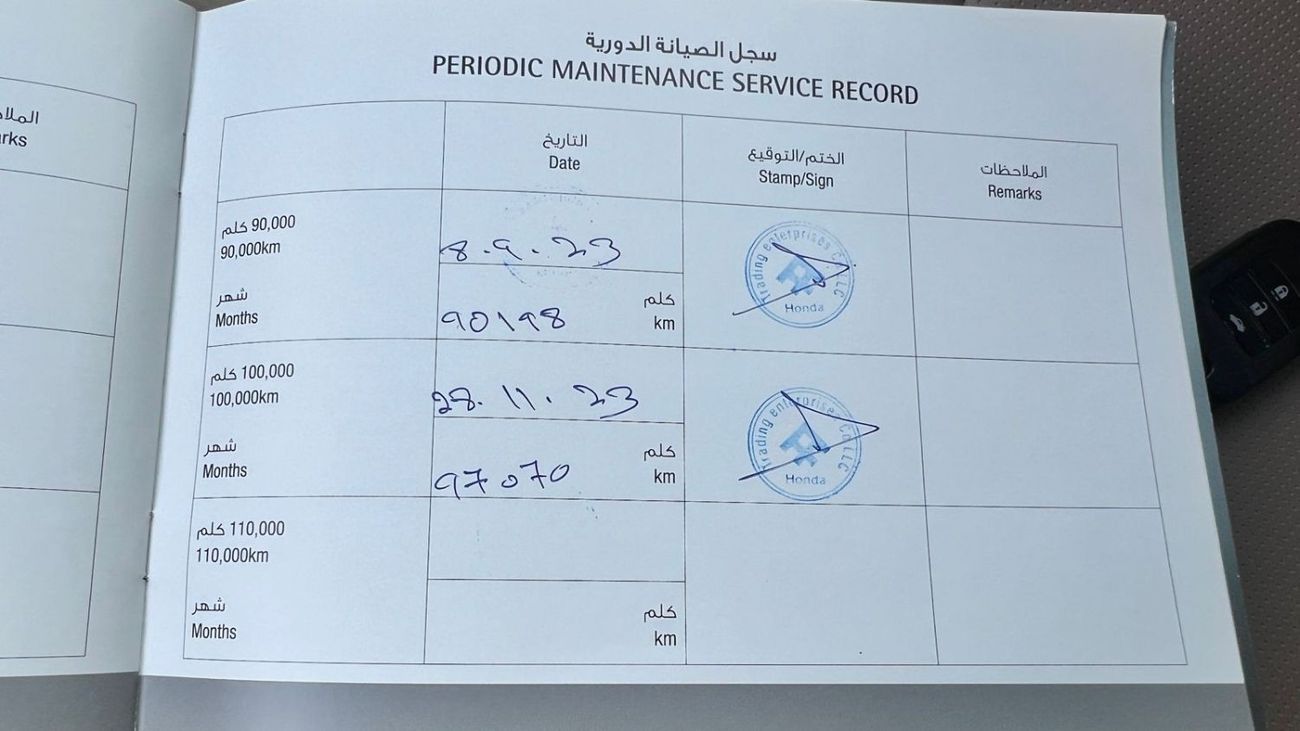 الملا
rks
سجل الصيانة الدورية
PERIODIC MAINTENANCE SERVICE RECORD
التاريخ
Date
الختم/التوقيع
Stamp/Sign
الملاحظات
Remarks
90,000 كلم
90,000km
8.9.23
Trading enterprises Co. LLC
Honda
شهر
Months
90198
كلم
km
100,000 كلم
100,000km
28.11.23
Trading enterprises Co. LLC
Honda
شهر
Months
97070
كلم
km
110,000 كلم
110,000km
شهر
Months
كلم
km